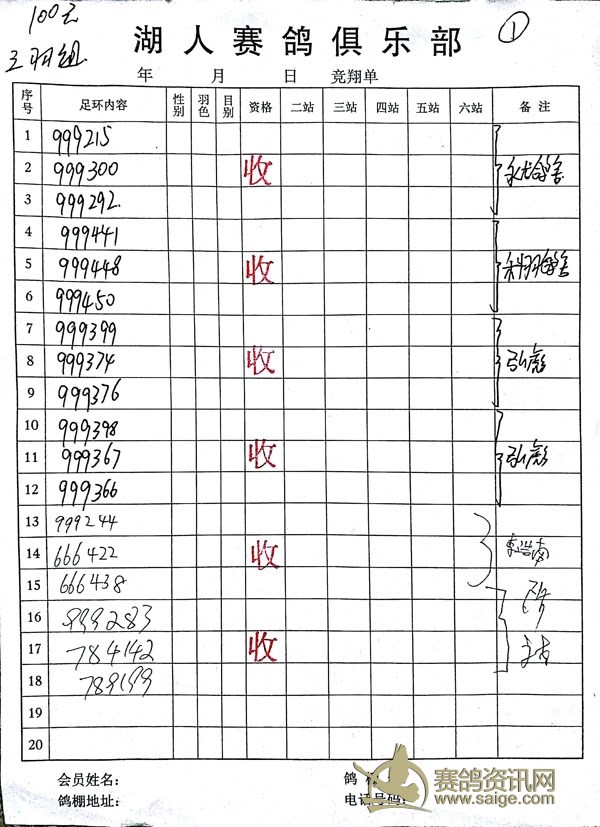 100元
三羽组
①
湖人赛鸽俱乐部
年 月 日 竞翔单
序号 足环内容 性别 羽色 目别 资格 二站 三站 四站 五站 六站 备注
1 999215
2 999300 收
3 999292
4 999441
5 999448 收
6 999450
7 999399
8 999374 收 弘彪
9 999376
10 999398
11 999367 收 弘彪
12 999366
13 999244
14 666422 收
15 666438
16 999283
17 784142 收
18 789199
19
20
会员姓名：
鸽棚地址： 电话号码：
赛鸽资讯网
www.saige.com